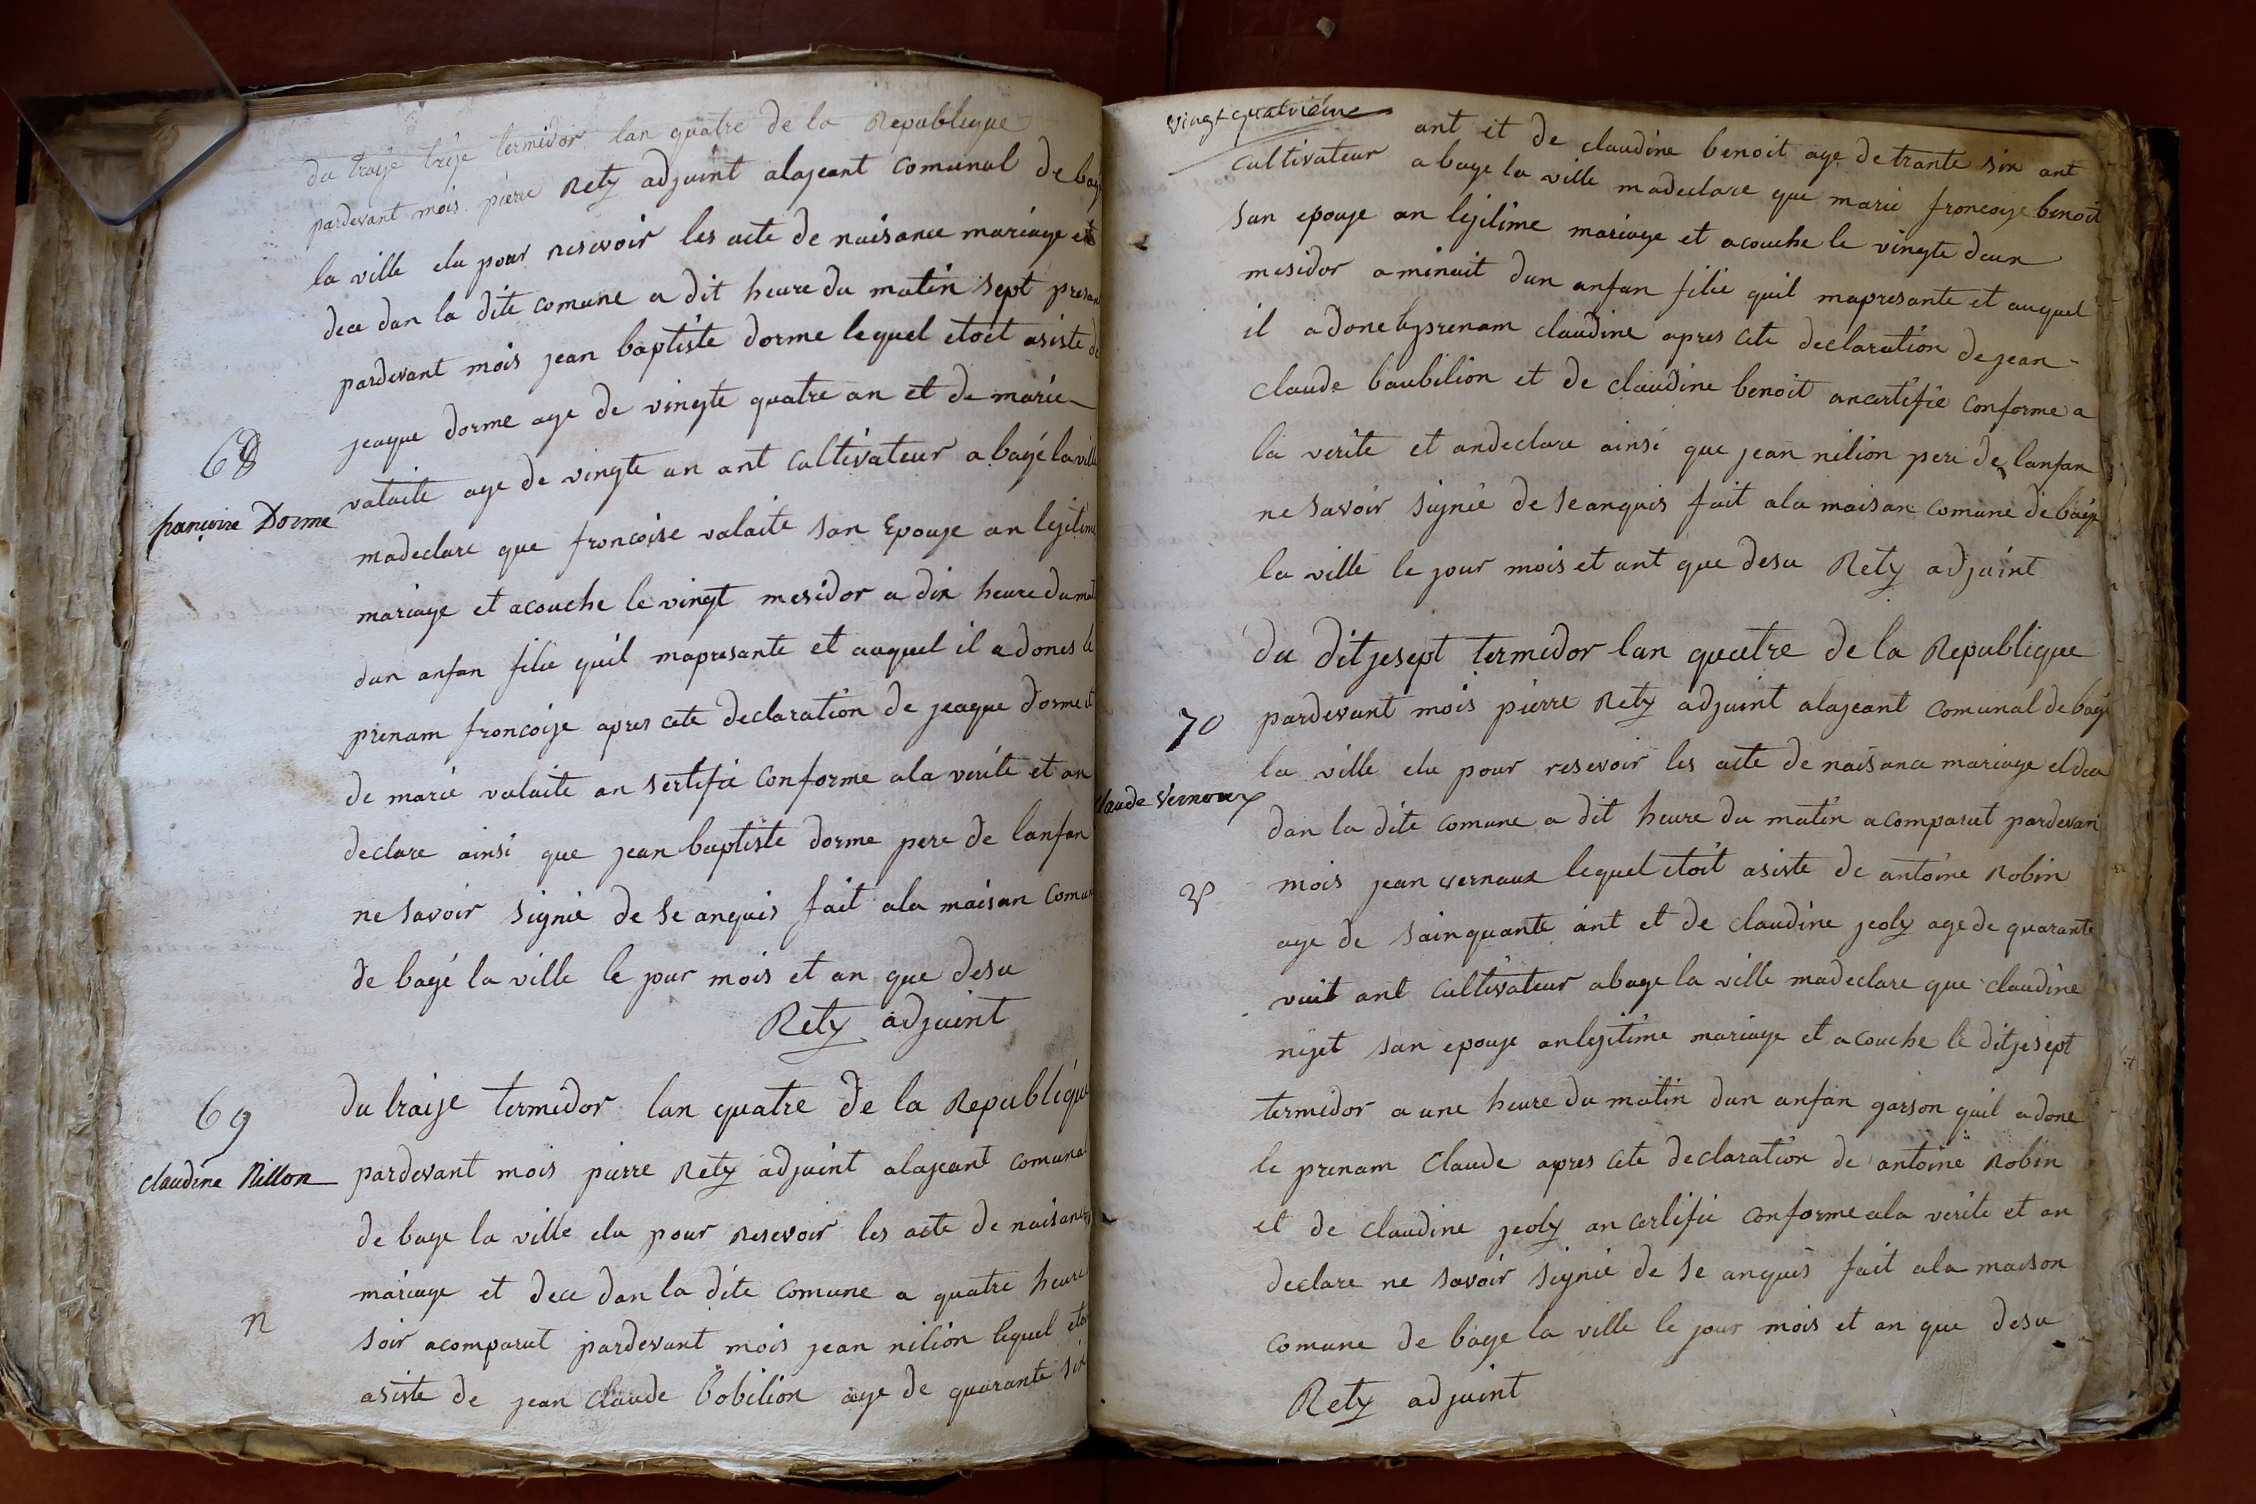 du traije treje termidor lan quatre de la Republique
pardevant mois pierre Rety adjuint alajeant comunal de bagé
la ville elu pour resevoir les acte de naisance mariage et
dece dan la dite comune a dit heure du matin sept presan
pardevant mois jean baptiste dorme lequel etoit asiste de
jeaque dorme age de vingte quatre an et de marie
68
valaite age de vingte un ant cultivateur a bagé la ville
françoise Dorme
madeclare que froncoise valaite san Epouje an lejitime
mariage et acouche le vingt mesidor a dix heure du mat
dun anfan filie quil mapresante et auquel il a dones le
prenam froncoije apres cete declaration de jeaque dorme et
de marie valaite an sertifie conforme ala verite et an
declare ainsi que jean baptiste dorme pere de lanfan
ne savoir signie de se anquis fait ala maisan comun
de bagé la ville le jour mois et an que desu
Rety adjuint
69
du traije termidor lan quatre de la Republique
claudine Nillon
pardevant mois pierre Rety adjuint alajeant comunal
de bage la ville elu pour resevoir les acte de naisance
mariage et dece dan la dite comune a quatre heure
n
soir acomparut pardevant mois jean nilion lequel etoi
asiste de jean claude bobilion age de quarante six
vingt quatrième
ant et de claudine benoit age de trante six ant
cultivateur a bage la ville madeclare que marie froncoije benoit
san epouje an lejitime mariage et acouche le vingte deux
mesidor a minuit dun anfan filie quil mapresante et auquel
il a done le prenam claudine apres cete declaration de jean
claude baubilion et de claudine benoit ancertifie conforme a
la verite et andeclare ainsi que jean nilion pere de lanfan
ne savoir signie de se anquis fait ala maisan comune de bage
la ville le jour mois et ant que desu Rety adjuint
du ditjesept termidor lan quatre de la Republique
70
pardevant mois pierre Rety adjuint alajeant comunal de bagé
la ville elu pour resevoir les acte de naisance mariage et dece
claude Vernoux
dan la dite comune a dit heure du matin acomparut pardevan
mois jean vernaux lequel etoit asiste de antoine Robin
age de sainquante ant et de claudine jeoly age de quarante
vuit ant cultivateur abage la ville madeclare que claudine
nijet san epouje anlejitime mariage et acouche le ditjesept
termidor a une heure du matin dun anfan garson quil adone
le prenam Claude apres cete declaration de antoine Robin
et de claudine jeoly an certifie conforme ala verite et an
declare ne savoir signie de se anquis fait ala maison
comune de bage la ville le jour mois et an que desu
Rety adjuint